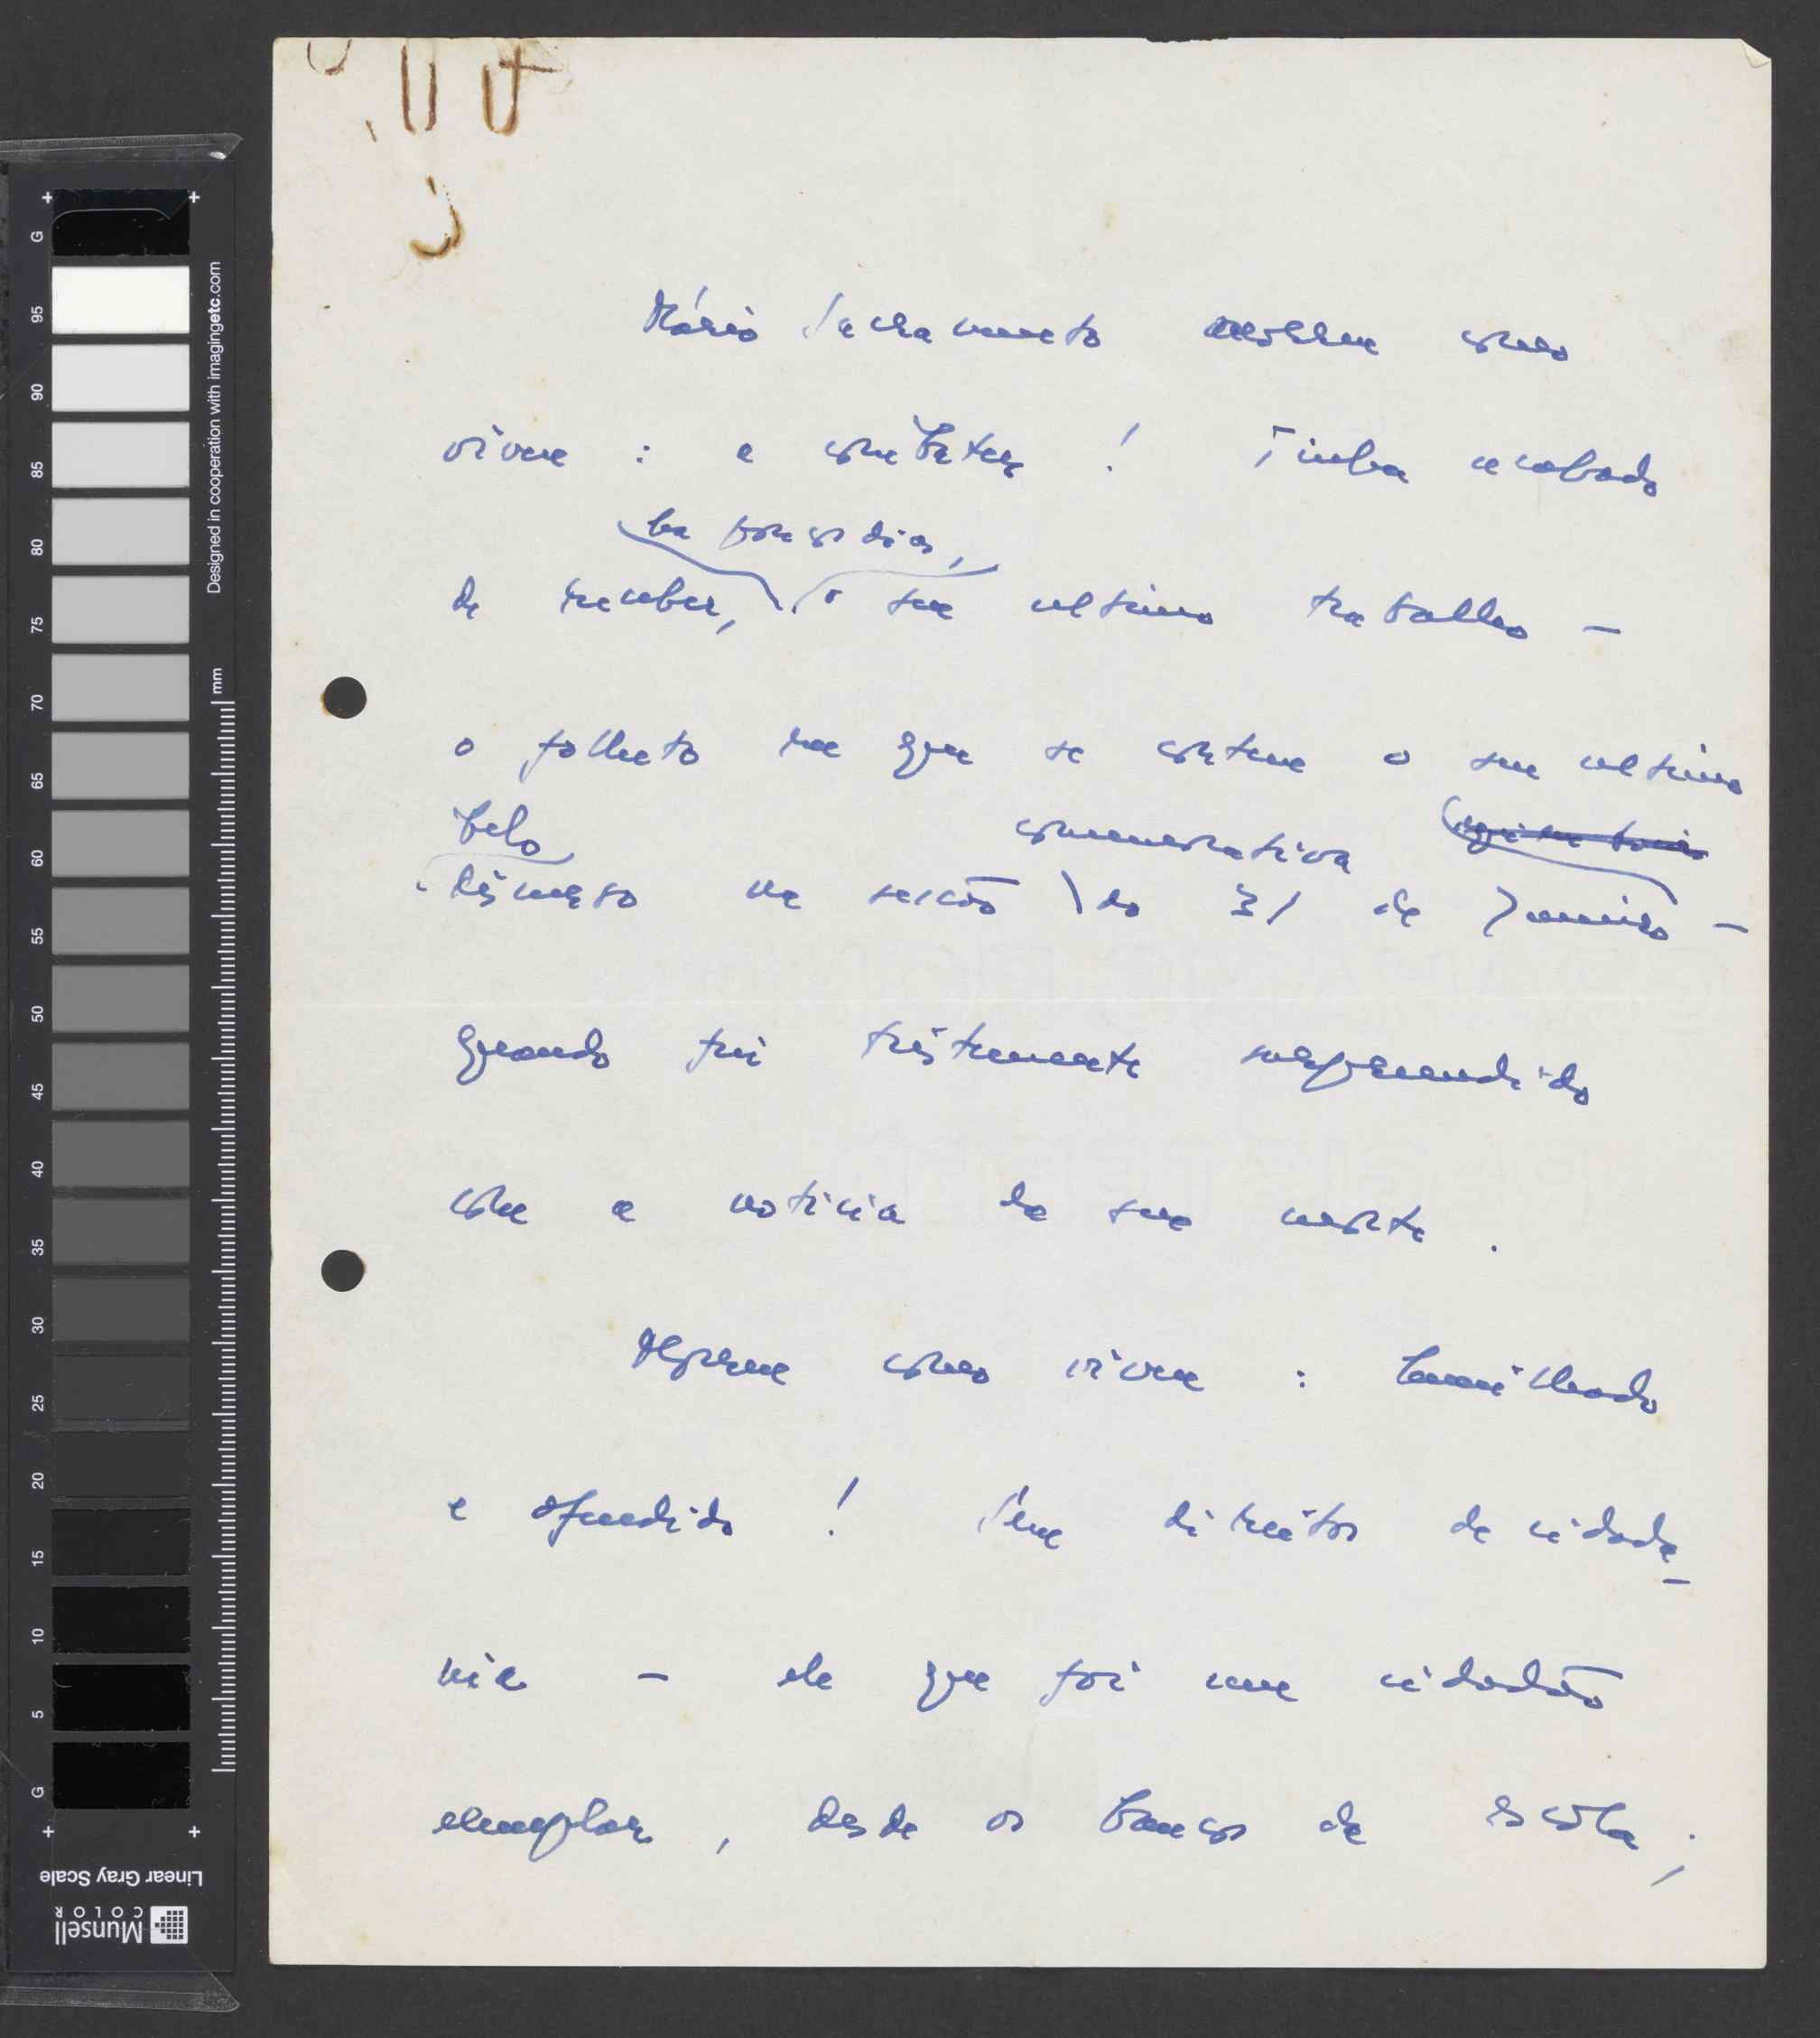 Mário Sacramento morreu como
viveu : a combater ! Tinha acabado
ha poucos dias,
de receber, o seu ultimo trabalho —
o folheto em que se contem o seu ultimo
belo comemorativa
discurso na sessão do 31 de Janeiro —
quando fui tristemente surpreendido
com a noticia da sua morte .
Morreu como viveu : humilhado
e ofendido ! Sem direitos de cidada-
nia — ele que foi um cidadão
exemplar , desde os bancos da escola ;
G
95
90
85
80
75
70
65
60
55
50
45
40
35
30
25
20
15
10
5
G
mm
Designed in cooperation with imagingetc.com
Linear Gray Scale
Munsell
COLOR